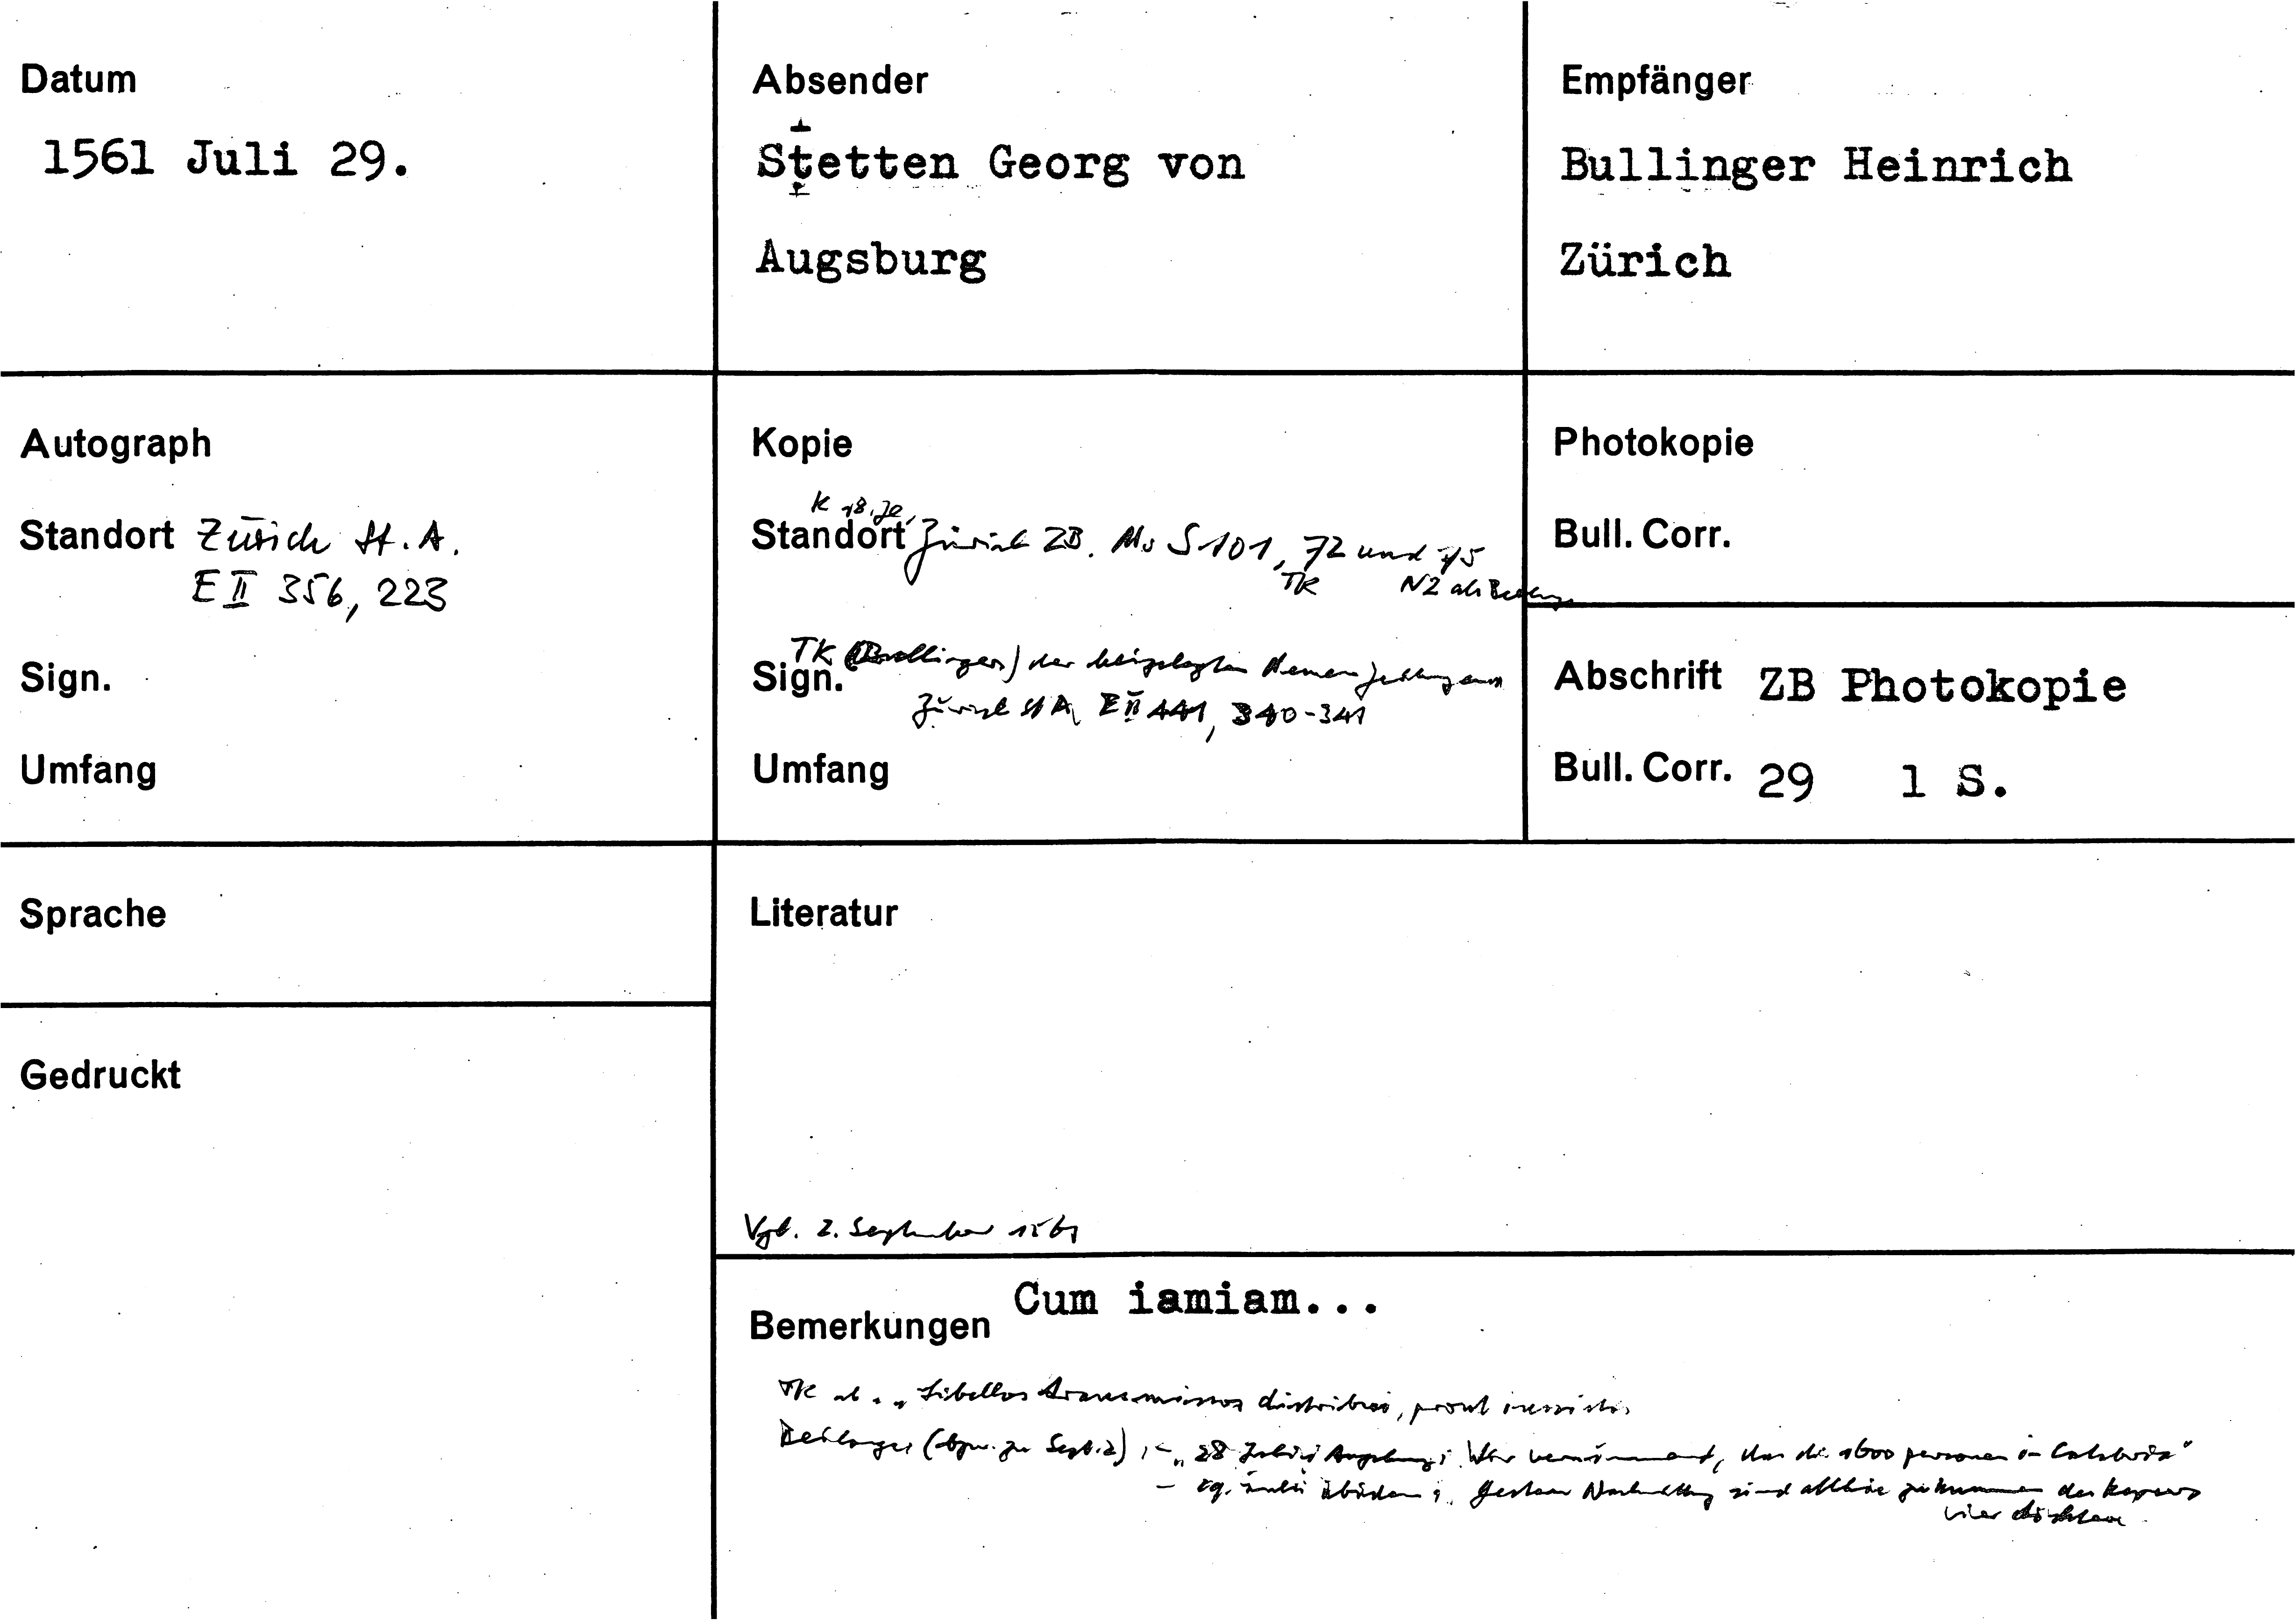 Datum
1561 Juli 29.
Absender
Stetten Georg von
Augsburg
Empfänger
Bullinger Heinrich
Zürich
Autograph
Standort Zürich St. A.
E II 356, 223
Sign.
Umfang
Kopie
K 18. Jh.
Standort Zürich ZB. Ms S 101, 72 und 75
TK NZ als Beilage
TK (Bullingers) der beigelegten Neuen Zeitungen
Sign.
Zürich StA, E II 441, 340-341
Umfang
Photokopie
Bull. Corr.
Abschrift ZB Photokopie
Bull. Corr. 29 1 S.
Sprache
Gedruckt
Literatur
Vgl. 2. September 1561
Bemerkungen Cum iamiam...
TK ab: "Libellos transmissos distribui, prout iussisti
Beilagen (bzw. zu Sept. 2): - "28 Julii Augsburg: Wir vernimment, das die 1600 personen in Calabria"
- 29. Julii ibidem: Gestern Nachmittag sind allhie zukummen des Keysers
vier döchteren